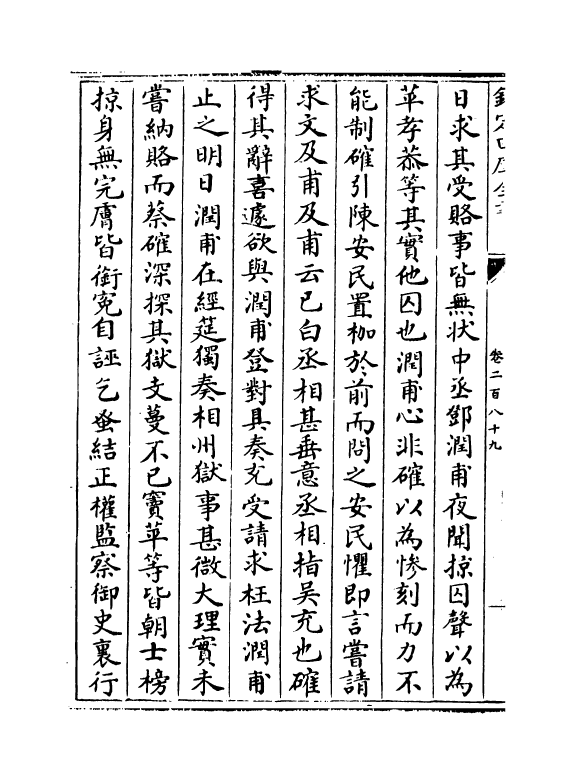 卷二百八十九
日求其受賂事皆無狀中丞鄧潤甫夜聞掠囚聲以為
苹孝恭等其實他囚也潤甫心非確以為慘刻而力不
能制確引陳安民置枷於前而問之安民懼即言嘗請
求文及甫及甫云已白丞相甚垂意丞相指吳充也確
得其辭喜遽欲與潤甫登對具奏充受請求枉法潤甫
止之明日潤甫在經筵獨奏相州獄事甚微大理實未
嘗納賂而蔡確深探其獄支蔓不已竇苹等皆朝士榜
掠身無完膚皆銜冤自誣乞蚤結正權監察御史裏行